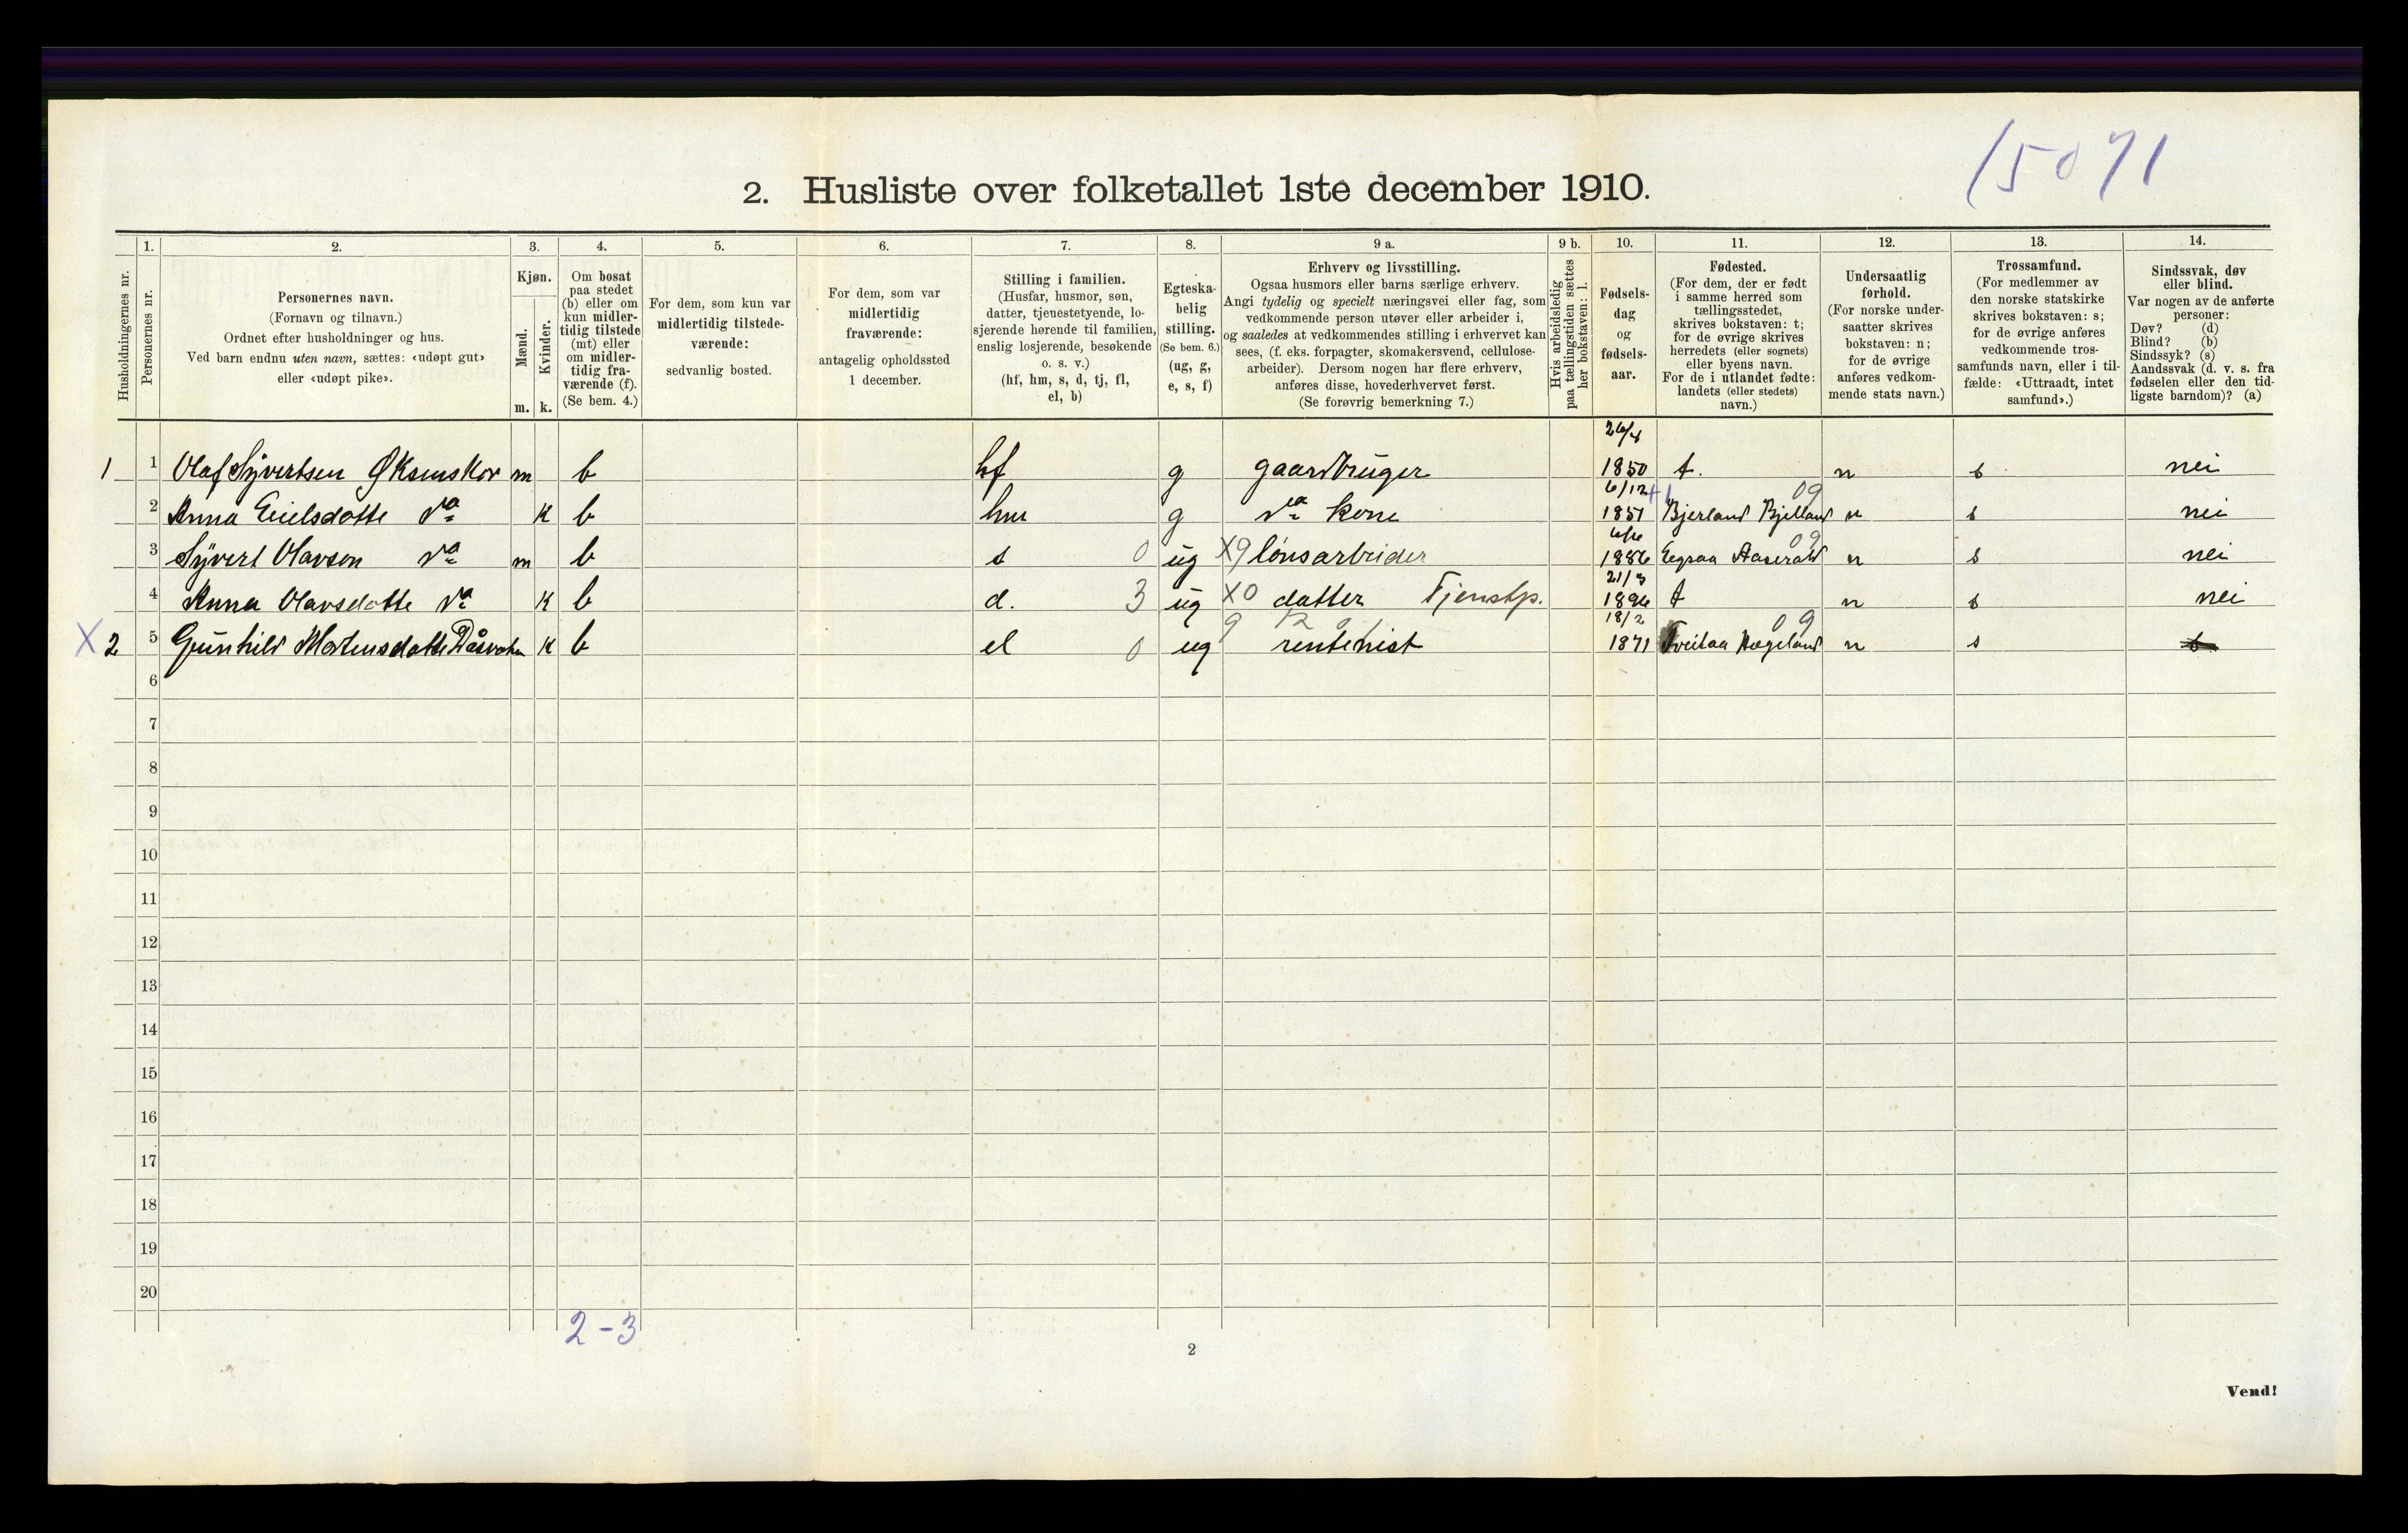 1507 1
2. Husliste over folketallet 1ste december 1910.
Husholdningernes nr.
1.
Personernes nr.
2.
Personernes navn.
(Fornavn og tilnavn.)
Ordnet efter husholdninger og hus.
Ved barn endnu uten navn, sættes: «udøpt gut»
eller «udøpt pike».
3.
Kjøn.
Mænd.
Kvinder.
m. k.
4.
Om bosat
paa stedet
(b) eller om
kun midler-
tidig tilstede
(mt) eller
om midler-
tidig fra-
værende (f).
(Se bem. 4.)
5.
For dem, som kun var
midlertidig tilstede-
værende:
sedvanlig bosted.
6.
For dem, som var
midlertidig
fraværende:
antagelig opholdssted
1 december.
7.
Stilling i familien.
(Husfar, husmor, søn,
datter, tjenestetyende, lo-
sjerende hørende til familien,
enslig losjerende, besøkende
o. s. v.)
(hf, hm, s, d, tj, fl,
el, b)
8.
Egteska-
belig
stilling.
(Se bem. 6.)
(ug, g,
e, s, f)
9 a.
Erhverv og livsstilling.
Ogsaa husmors eller barns særlige erhverv.
Angi tydelig og specielt næringsvei eller fag, som
vedkommende person utøver eller arbeider i,
og saaledes at vedkommendes stilling i erhvervet kan
sees, (f. eks. forpagter, skomakersvend, cellulose-
arbeider). Dersom nogen har flere erhverv,
anføres disse, hovederhvervet først.
(Se forøvrig bemerkning 7.)
9 b.
Hvis arbeidsledig
paa tællingstiden sættes
her bokstaven: l.
10.
Fødsels-
dag
og
fødsels-
aar.
11.
Fødested.
(For dem, der er født
i samme herred som
tællingsstedet,
skrives bokstaven: t;
for de øvrige skrives
herredets (eller sognets)
eller byens navn.
For de i utlandet fødte:
landets (eller stedets)
navn.)
12.
Undersaatlig
forhold.
(For norske under-
saatter skrives
bokstaven: n;
for de øvrige
anføres vedkom-
mende stats navn.)
13.
Trossamfund.
(For medlemmer av
den norske statskirke
skrives bokstaven: s;
for de øvrige anføres
vedkommende tros-
samfunds navn, eller i til-
fælde: «Uttraadt, intet
samfund».)
14.
Sindssvak, døv
eller blind.
Var nogen av de anførte
personer:
Døv? (d)
Blind? (b)
Sindssyk? (s)
Aandssvak (d. v. s. fra
fødselen eller den tid-
ligste barndom)? (a)
1 1 Olaf Syvertsen m b hf g gaardbruger 1850 t. n s nei
2 Anna da k b hm g da kone 6/12 1851 Bjerland Bjelland 09 n s nei
3 Syvert Olavson da m b s 0 ug X9 lønsarbeider 1886 Aaseral 09 n s nei
4 Anna Olavsdatte da k b d. 3 ug X0 datter Tjenstp. 21/3 1896 t n s nei
X 2 5 Gunhild Mortensdatte k b el 0 ug 9 rentenist 18/2 1871 Hægeland 09 n s
6
7
8
9
10
11
12
13
14
15
16
17
18
19
20
2-3
2
Vend!